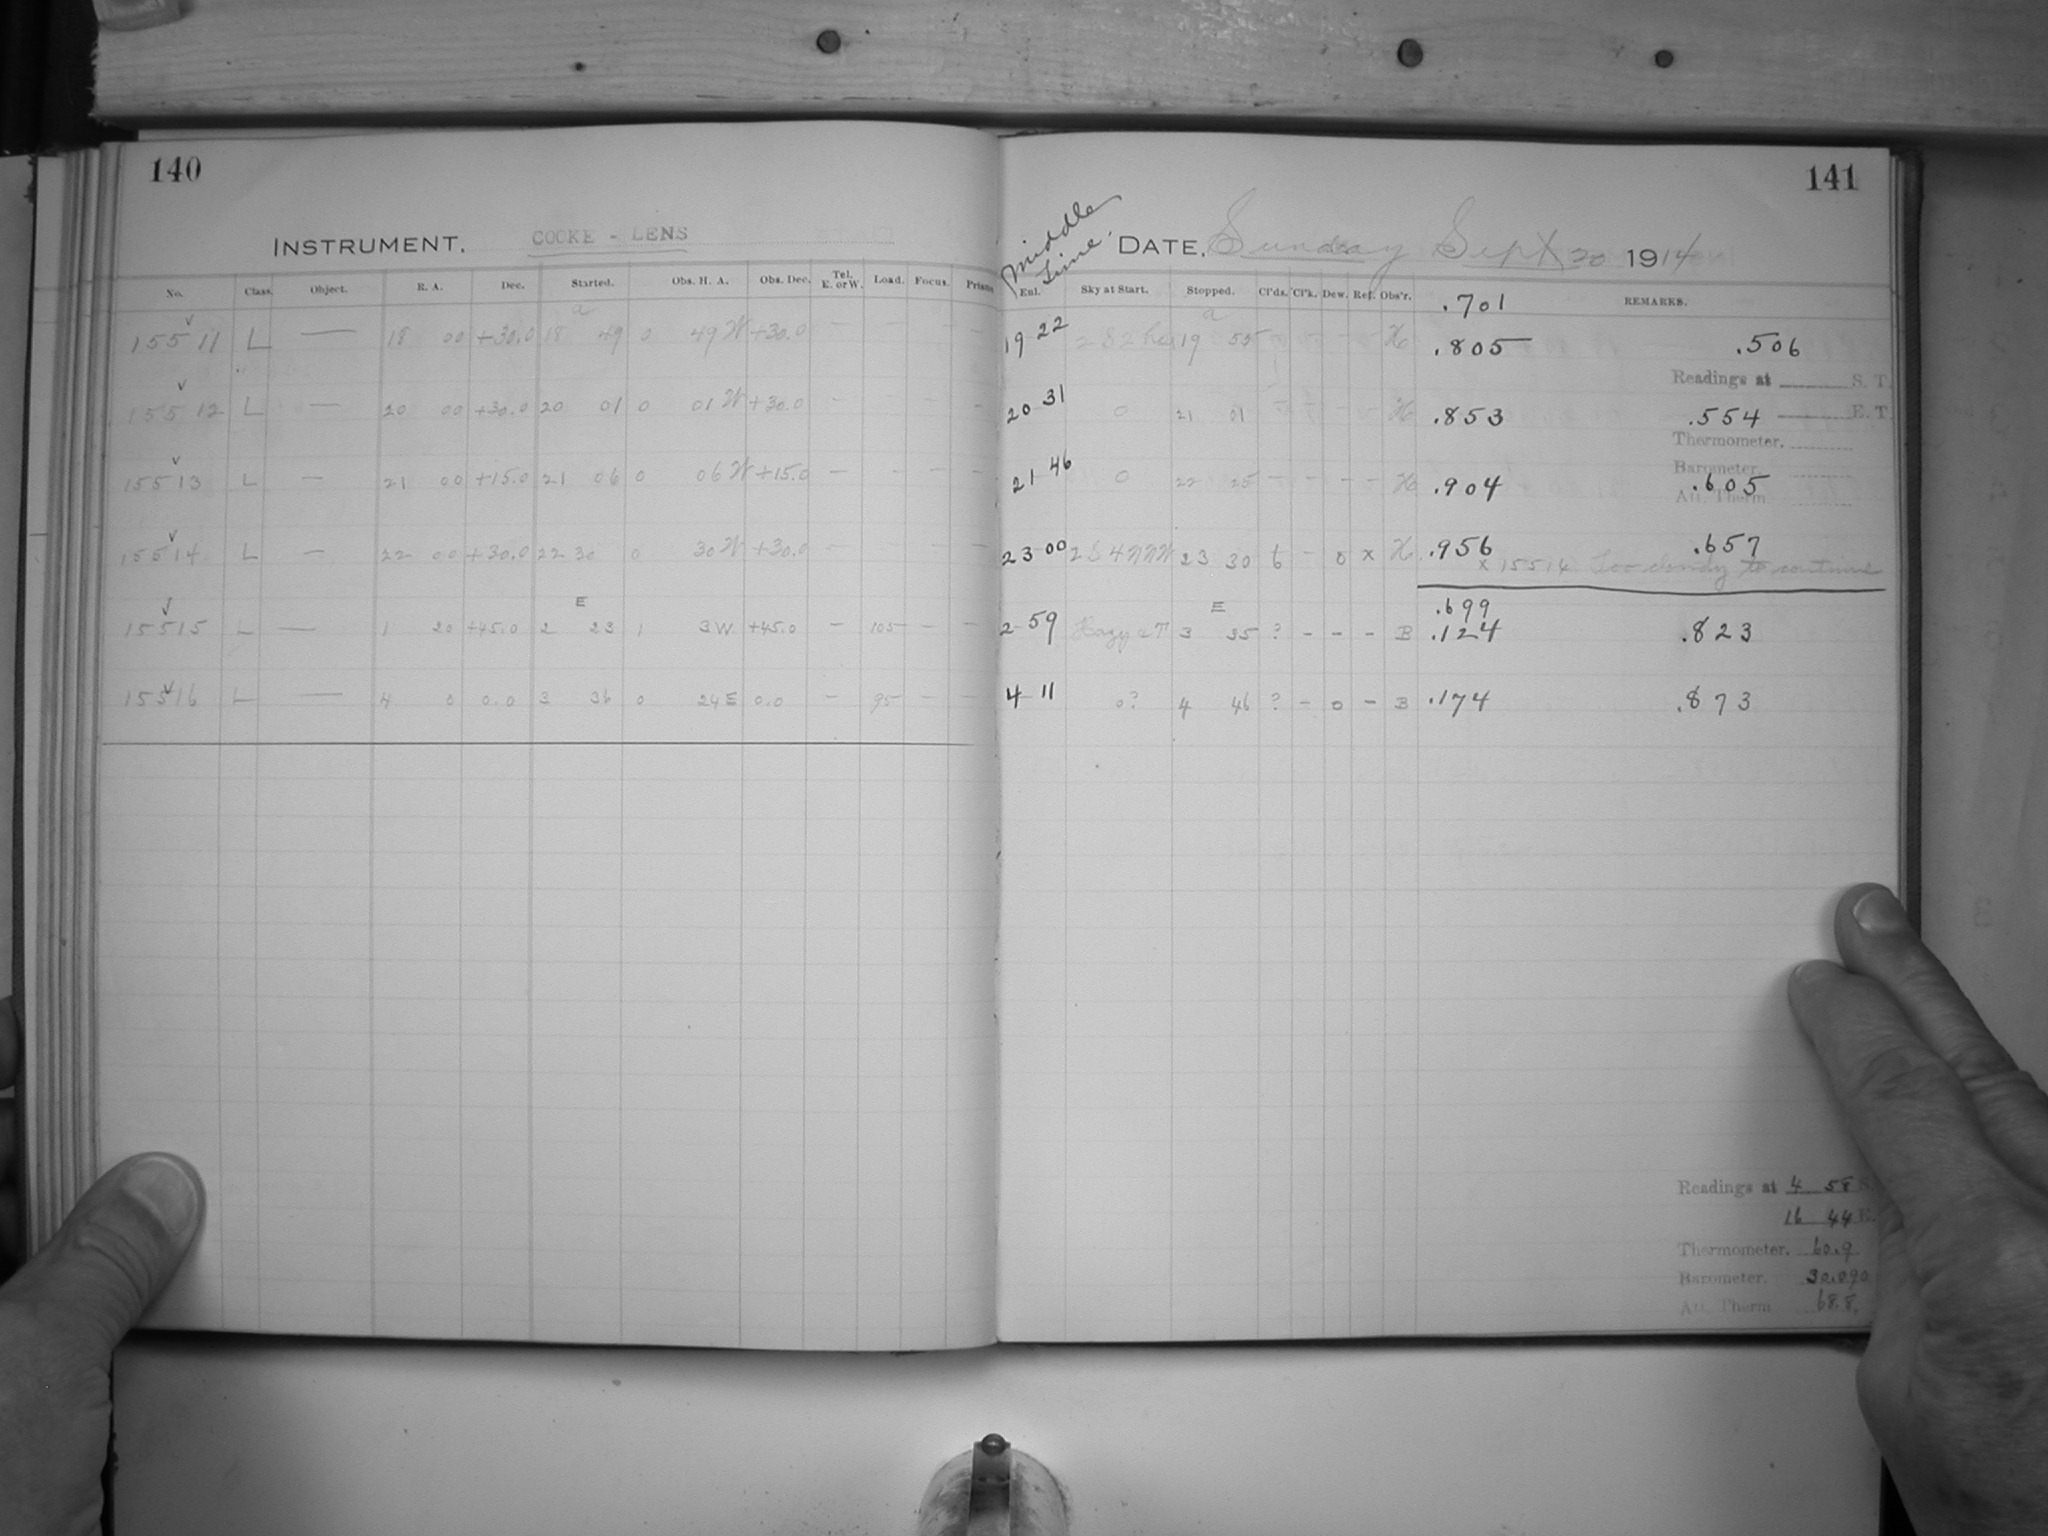 140
INSTRUMENT. COOKE - LENS
No. Class. Object. R. A. Dec. Started. Obs. H. A. Obs. Dec. Tel. E. or W. Load. Focus. Prisms
a
15511 L — 18 00 +30.0 18 49 0 49 W +30.0 — - - -
15512 L — 20 00 +30.0 20 01 0 01 W +30.0 - - - -
15513 L — 21 00 +15.0 21 06 0 06 W +15.0 - - - -
15514 L — 22 00 +30.0 22 30 0 30 W +30.0 - - - -
E
15515 L — 1 20 +45.0 2 23 1 3 W. +45.0 - 105 - -
15516 L — 4 0 0.0 3 36 0 24 E 0.0 - 95 - -
141
Middle Time.
DATE, Sunday Sept 20 1914
Enl. Sky at Start. Stopped. Cl'ds. Cl'k. Dew. Ref. Obs'r. REMARKS.
.701
a
19 22 19 55 H .805 .506
Readings at S. T.
20 31 0 21 01 - - - - H .853 .554 E. T.
Thermometer.
Barometer.
21 46 0 22 25 - - - - H .904 .605
Att. Therm.
23 00 23 30 6 - 0 x H .956 .657
x 15514 Too cloudy to continue
E
.699
2 59 Hazy 3 35 ? - - - B .124 .823
4 11 0? 4 46 ? - 0 - B .174 .873
Readings at 4 58 S.
16 44 E.
Thermometer. 60.9
Barometer. 30.090
Att. Therm 68.8